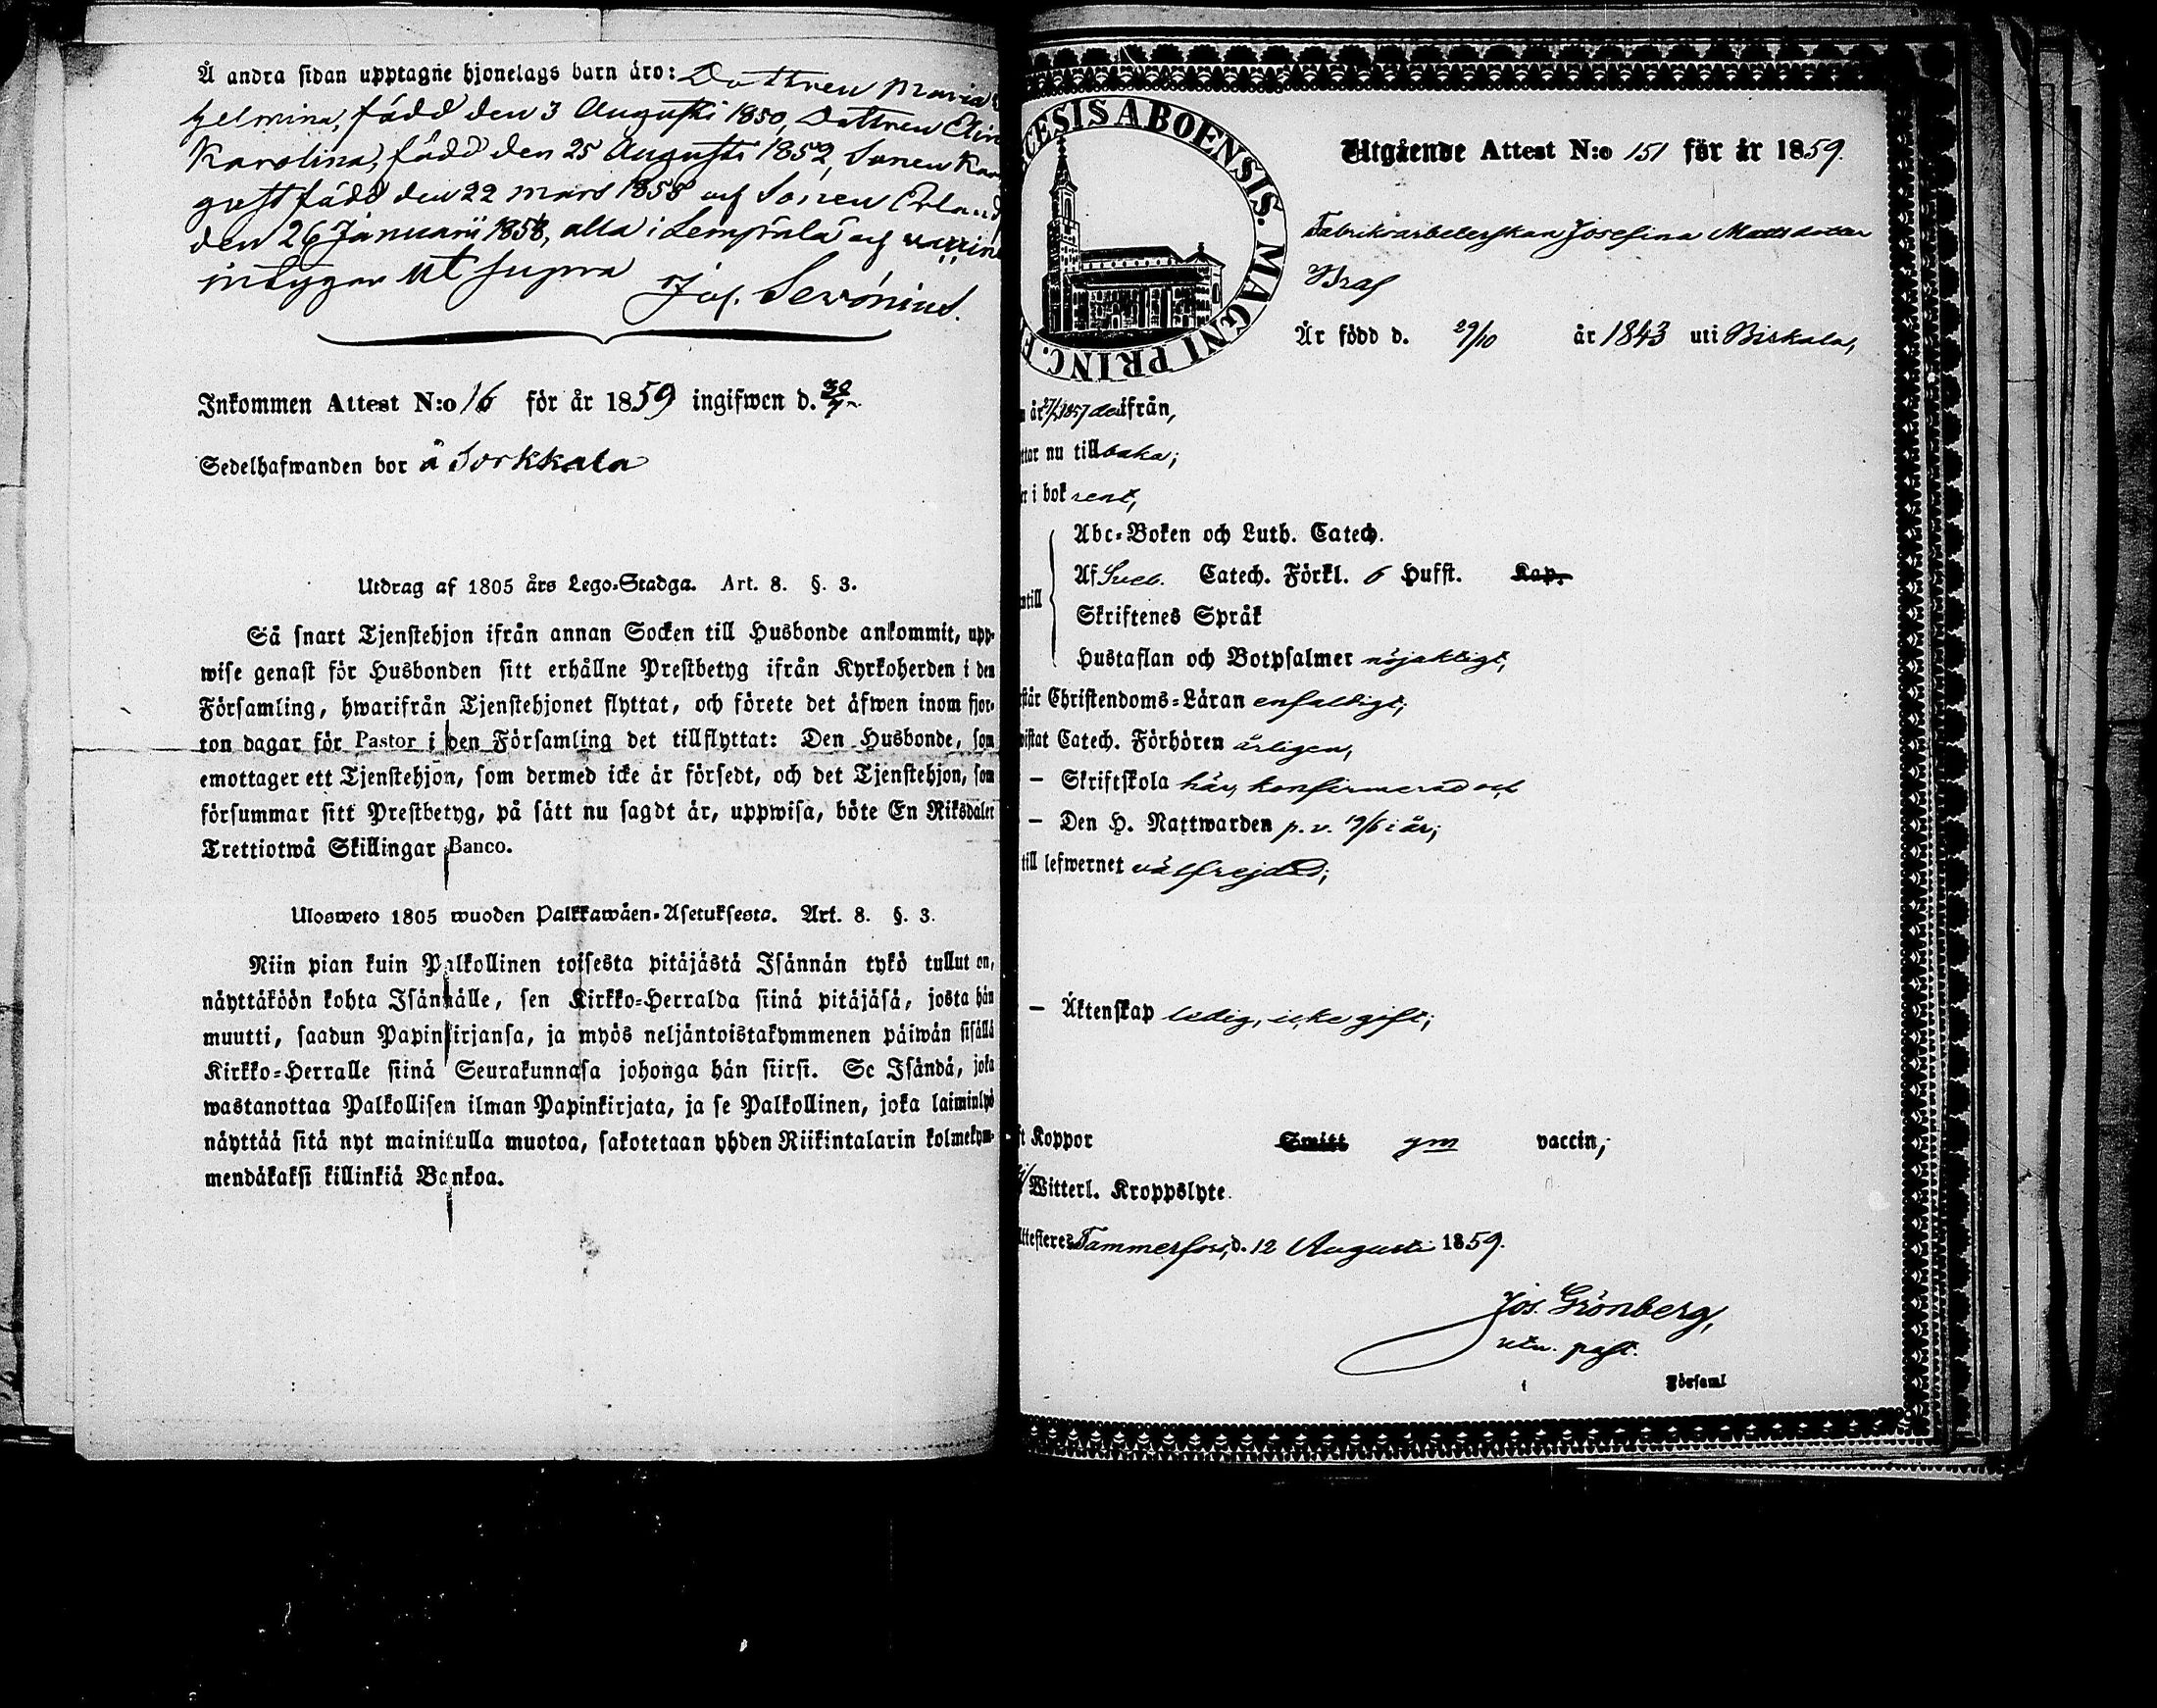 Å andra sidan upptagne hjonelags barn äro: Dottren Maria
Helmina, född den 3 Augusti 1850, Dottren Elin
Karolina, född den 25 Augusti 1852, Sonen Kar
gust född den 22 mars 1858 och Sonen Erland
den 26 Januarii 1858, alla i Lempäälä och vaccin
intygar ut supra Jos. Servónius.
Inkommen Attest N:o 16 för år 1859 ingifwen d. 30/7
Sedelhafwanden bor å Sorkkala
Utdrag af 1805 års Lego-Stadga. Art. 8. §. 3.
Så snart Tjenstehjon ifrån annan Socken till Husbonde ankommit, upp-
wise genast för Husbonden sitt erhållne Prestbetyg ifrån Kyrkoherden i den
Församling, hwarifrån Tjenstehjonet flyttat, och förete det äfwen inom fjor-
ton dagar för Pastor i den Församling det tillflyttat: Den Husbonde, som
emottager ett Tjenstehjon, som dermed icke är försedt, och det Tjenstehjon, som
försummar sitt Prestbetyg, på sätt nu sagdt är, uppwisa, böte En Riksdaler
Trettiotwå Skillingar Banco.
Ulosweto 1805 wuoden Palkkawäen-Asetuksesta. Art. 8. §. 3.
Niin pian kuin Palkollinen toisesta pitäjästä Isännän tykö tullut on,
näyttäköön kohta Isännälle, sen Kirkko-Herralda siinä pitäjäsä, josta hän
muutti, saadun Papinkirjansa, ja myös neljäntoistakymmenen päiwän sisällä
Kirkko-Herralle siinä Seurakunnasa johonga hän siirsi. Se Isändä, joka
wastanottaa Palkollisen ilman Papinkirjata, ja se Palkollinen, joka laiminlyö
näyttää sitä nyt mainitulla muotoa, sakotetaan yhden Riikintalarin kolmekym-
mendäkaksi killinkiä Bankoa.
CESIS ABOENSIS. MAGNI PRINC. F
Utgående Attest N:o 151 för år 1859.
Fabriksarbeterskan Josefina Matts dotter
Braf
Är född d. 29/10 år 1843 uti Birkala,
år 1857 derifrån,
ttar nu tillbaka;
r i bok rent,
Abc-Boken och Luth. Catech.
Af Sveb. Catech. Förkl. 6 Hufst. Kap.
ntill
Skriftenes Språk
Hustaflan och Botpsalmer nöjaktigt,
står Christendoms-Läran enfaldigt;
vistat Catech. Förhören årligen,
— Skriftskola här, konfirmerad och
— Den H. Nattwarden p. v. 19/6 i år;
till lefwernet välfrejdad;
— Äktenskap ledig, icke gift;
ft Koppor Smitt gm vaccin;
Witterl. Kroppslyte.
Attesteres Tammerfors, d. 12 Augusti 1859.
Jos. Grönberg,
utn. past.
Församl